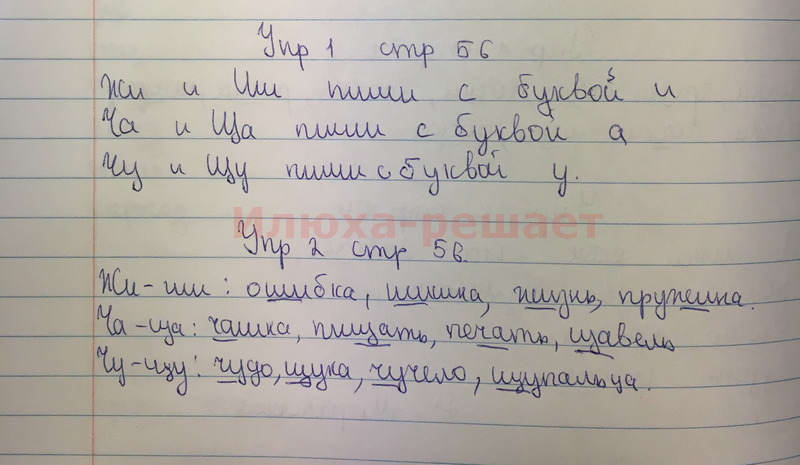 Упр 1 стр 56
Жи и Ши пиши с буквой и
Ча и Ща пиши с буквой а
Чу и Щу пиши с буквой у.
Илюха-решает
Упр 2 стр 56.
Жи-ши: ошибка, шишка, жизнь, пружина.
Ча-ща: чашка, пищать, печать, щавель
Чу-щу: чудо, щука, чучело, щупальца.